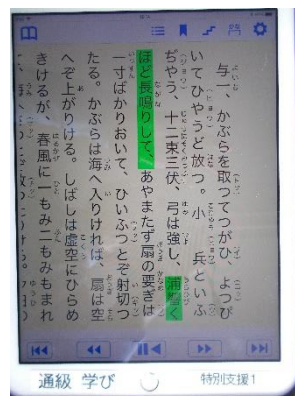 与一、かぶらを取つてつがひ、よつぴ
いてひやうど放つ。小 兵といふ
ぢやう、十二束三伏、弓は強し、浦響く
ほど長鳴りして、あやまたず扇の要ぎは
一寸ばかりおいて、ひいふつとぞ射切つ
たる。かぶらは海へ入りければ、扇は空
へぞ上がりける。しばしは虚空にひらめ
きけるが、春風に 一もみ二もみもまれ
通級 学び
特別支援1